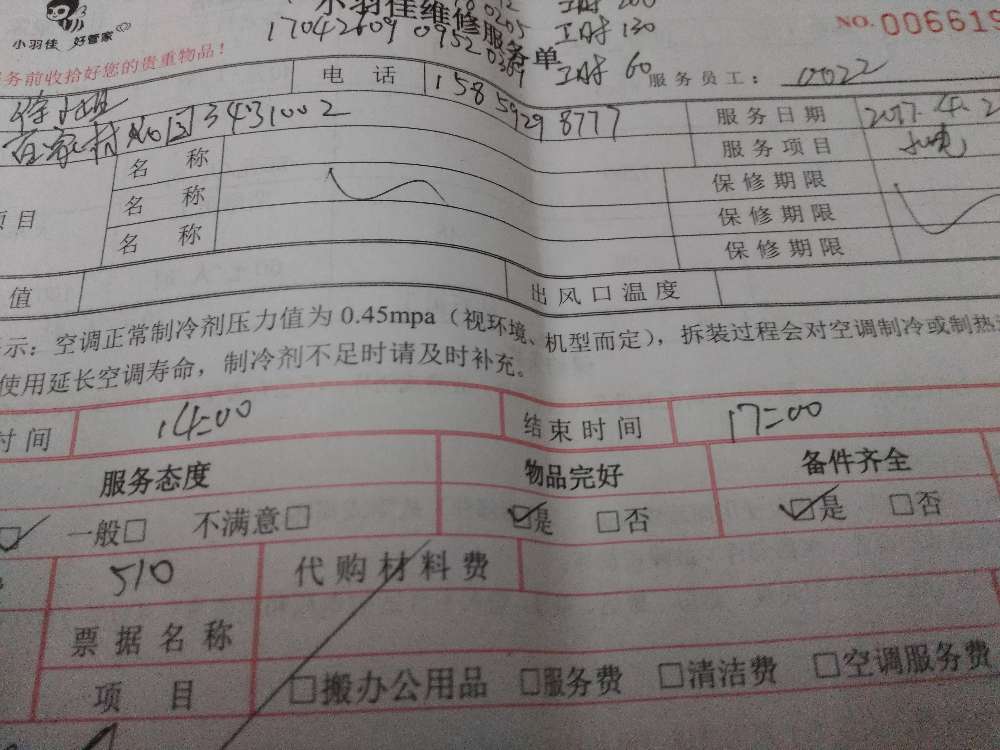 小羽佳 好管家
小羽佳维修服务单
工时 200
17042609 0952 0309
工时 130
工时 60
NO. 006619
务前收拾好您的贵重物品!
服务员工: 0022
电话 158 5929 8777
服务日期 2017.4.2
徐小姐
百家村 No 3431002
服务项目
名称 保修期限
项目 名称 保修期限
名称 保修期限
值 出风口温度
示:空调正常制冷剂压力值为 0.45mpa(视环境、机型而定),拆装过程会对空调制冷或制热
使用延长空调寿命,制冷剂不足时请及时补充。
时间 14=00 结束时间 17=00
服务态度 物品完好 备件齐全
☑ 一般□ 不满意□ ☑是 □否 ☑是 □否
510 代购材料费
票据名称
项目 □搬办公用品 □服务费 □清洁费 □空调服务费